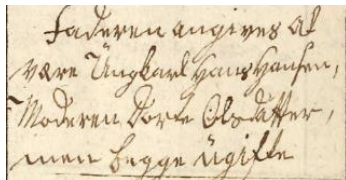 Faderen angives at
være Ungkarl Hans Hansen,
Moderen Dorte Olsdatter,
men begge ugifte